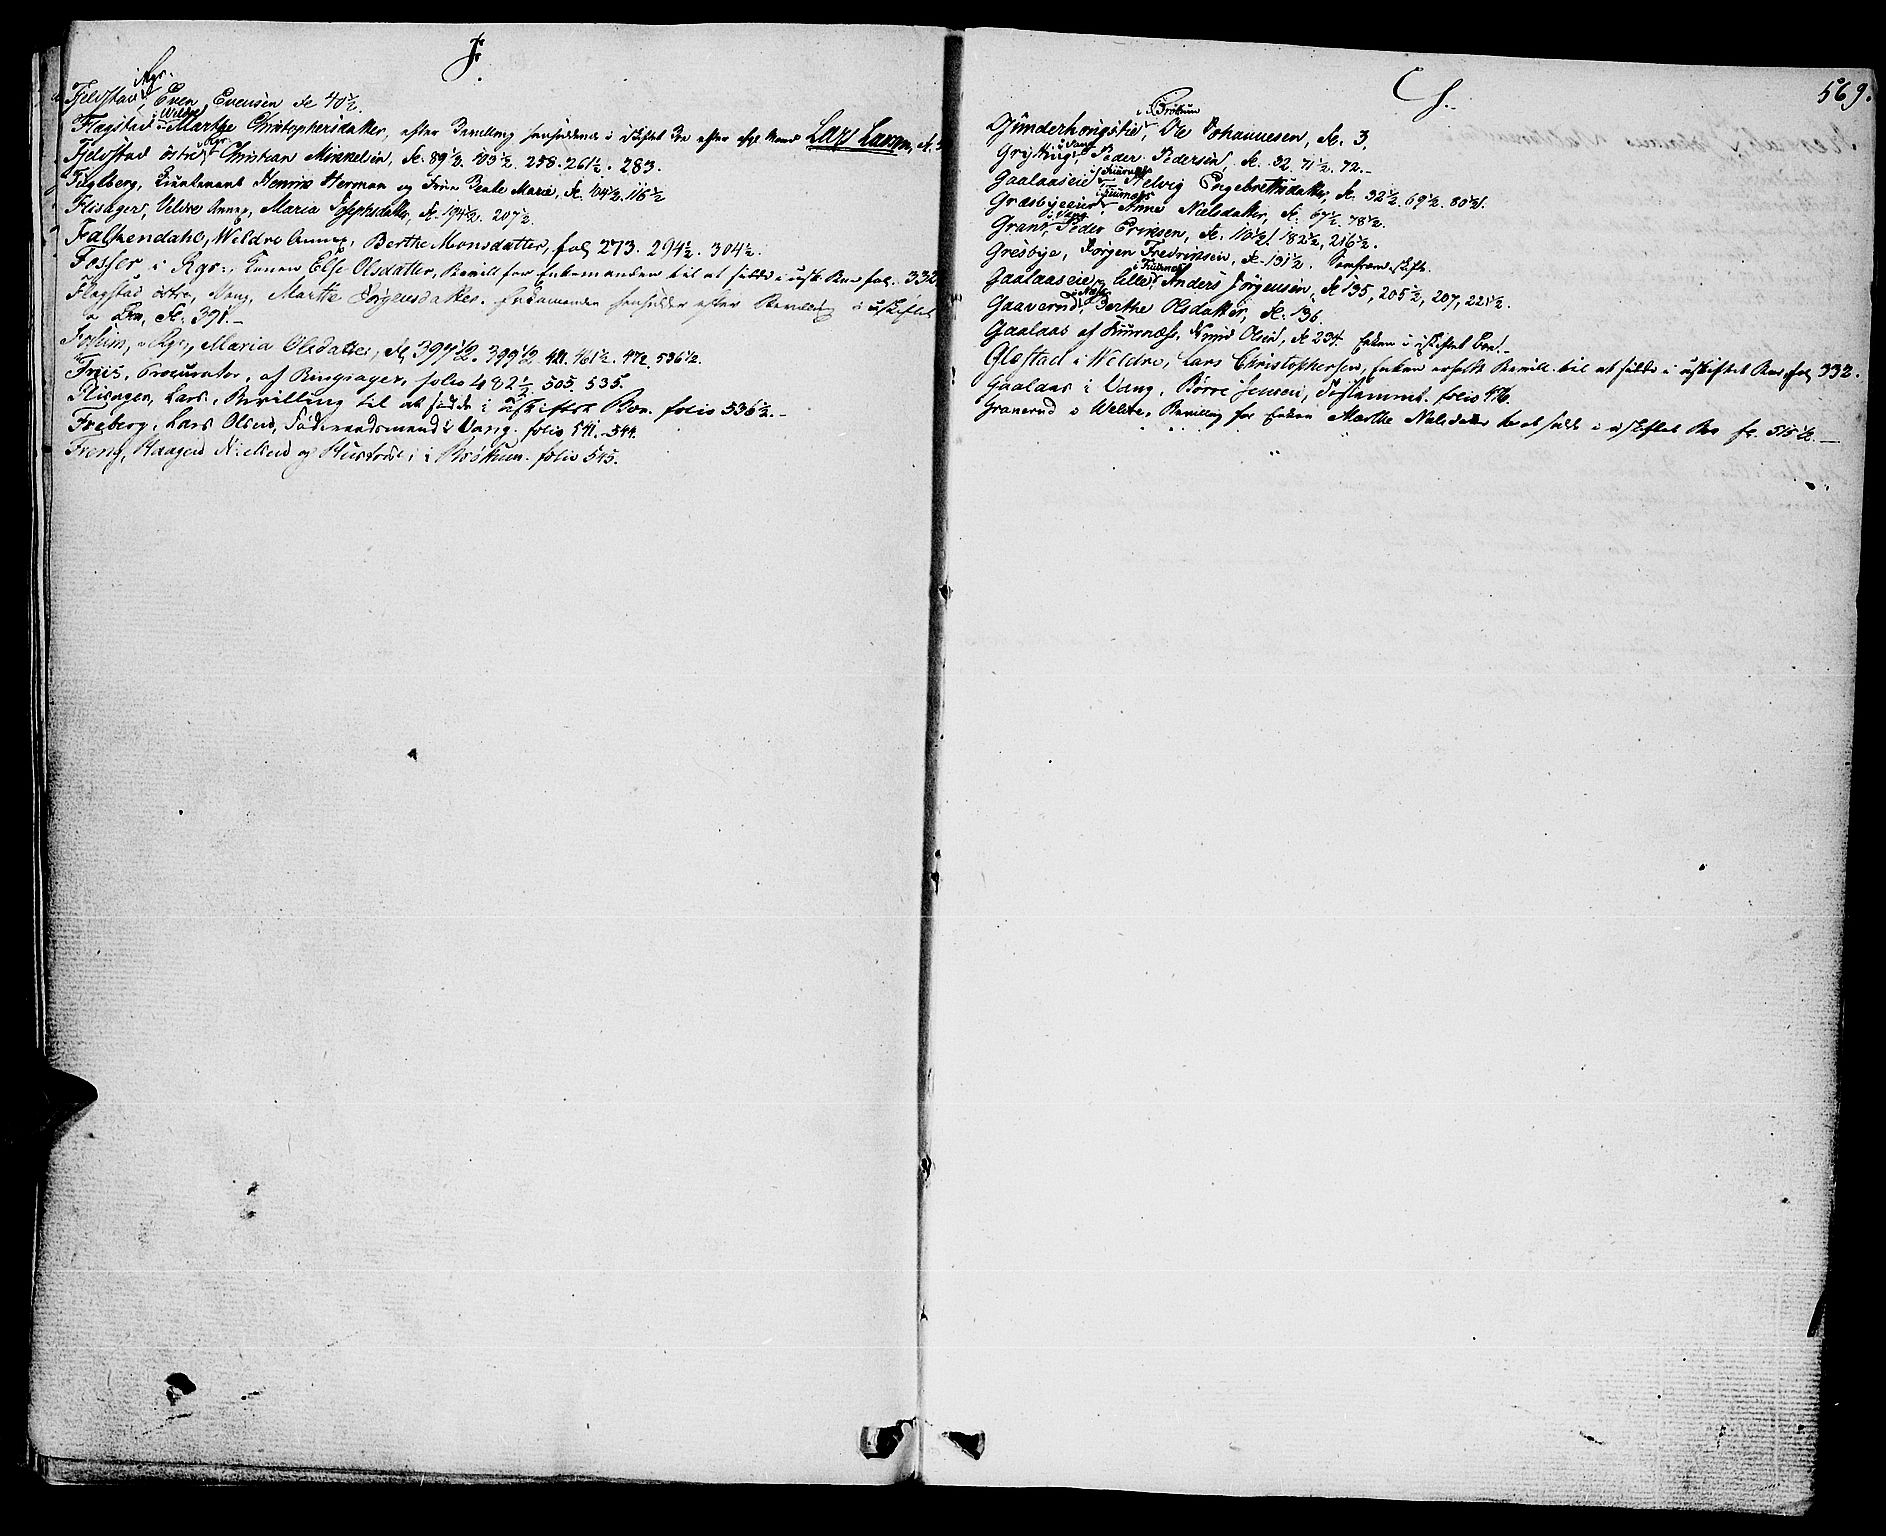 F.
Fjeldstad i Rgr. Even Evensen Fe 40½.
Flagstad i Weldre Marthe Christophersdatter, efter Bevilling hensiddende i uskiftet Boe efter afg. Mand Lars Larsen,
Fjeldstad östre i Rgr. Christian Mikkelsen, Fe. 89½. 103½. 258. 261½. 283.
Fuglberg, Lieutenant Henrik Herman og Frue Beate Marie, Fe. 104½. 116½
Flisager, Veldre Annex, Maria Josephsdatter, Fe. 194½. 207½.
Falkendahl, Weldre Annex, Berthe Monsdatter, fol 273. 294½. 304½.
Fosser i Rgr., Konen Else Olsdatter, Bevill. for Enkemanden til at sidde i uskt. Boe fol. 332
Flagstad östre, Vang, Marthe Jörgensdatter. Enkemanden hensidder efter Bevilling i uskiftet
Boe, Fe. 391.
Fossum, Rgr., Maria Olsdatter, Fe 397½. 399½. 421. 461½. 472. 536½.
Friis, Procurator, af Ringsager, folio 482½. 505. 535.
Flisagen, Lars, Bevilling til at sidde i uskiftet Bo. folio 536½.
Freberg, Lars Olsen, Föderaadsmand i Vang. folio 541. 544.
Freng, Haagen Nielsen og Hustrue, i Brøttum. folio 545.
G.
569.
Gunderhougstie, i Bröttum Ole Johannesen, Fe. 3.
Grytting, i Vang Peder Pedersen Fe. 32. 71½. 72.
Gaalaaseie i Fuurnæs Helvig Engebretsdatter, Fe. 32½. 69½. 80½.
Græsbyeeie i Fuurnæs Anne Nielsdatter, Fe. 67½. 78½.
Gran i Vang, Peder Eriksen, Fe. 110½. 182½, 216½.
Gresbye, Jörgen Fredriksen, Fe 131½. Samfrændeskifte.
Gaalaaseie, lille, i Fuurnæs Anders Jörgensen, Fe 195, 205½, 207, 221½.
Gaaverud, i Næs Berthe Olsdatter, Fe. 196.
Gaalaas af Fuurnæss, Knud Olsen, Fe 234. Enken i uskiftet Boe.
Gløstad i Weldre, Lars Christophersen, Enken erholdt Bevill. til at sidde i uskiftet Boe fol 332.
Gaalaas i Vang, Börre Jensen, Testament. folio 476.
Granerud i Weldre, Bevilling for Enken Marthe Nielsdatter til at sidde i uskiftet Boe fe. 515½.